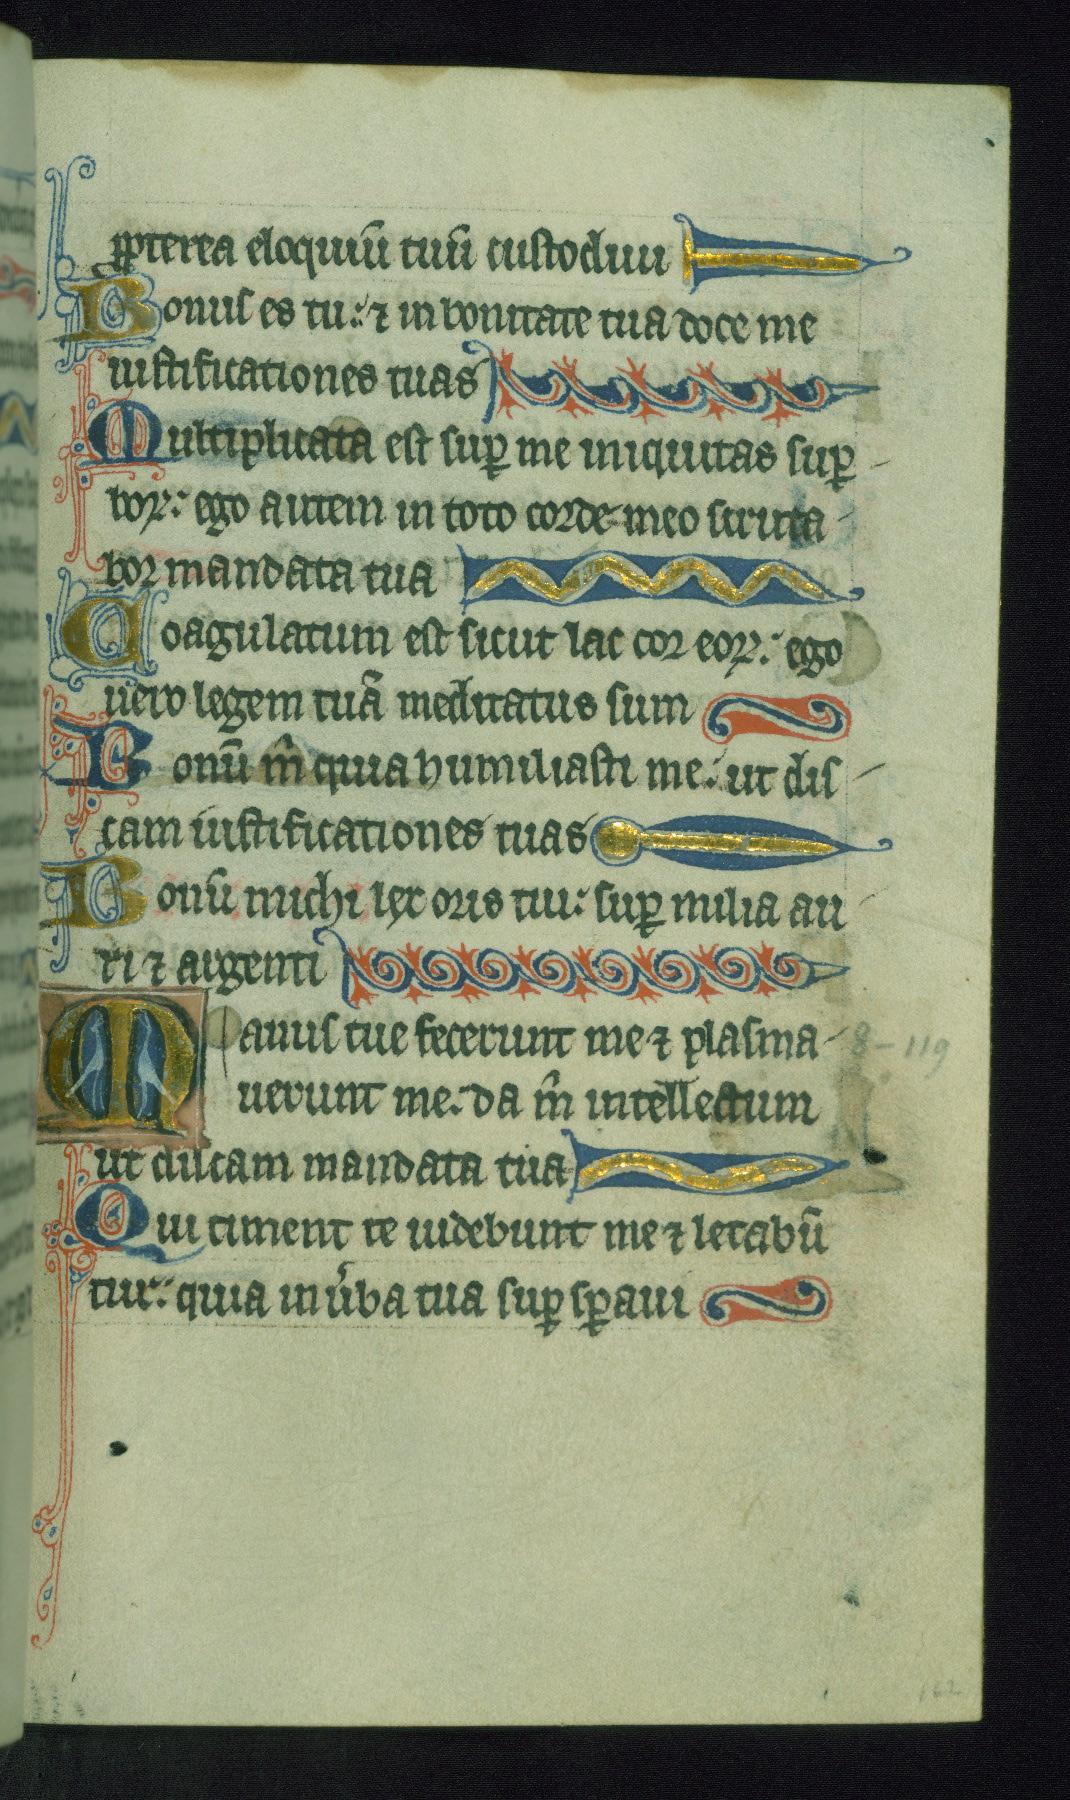 ꝓpterea eloquiū tuū custodiui
Bonus es tu: ⁊ in bonitate tua doce me
iustificationes tuas
Multiplicata est suꝑ me iniquitas suꝑ
boꝝ: ego autem in toto corde meo scruta
bor mandata tua
Coagulatum est sicut lac cor eoꝝ: ego
uero legem tuā meditatus sum
Bonū m̄ quia humiliasti me: ut dis
cam iustificationes tuas
Bonū michi lex oris tui: suꝑ milia au
ri ⁊ argenti
Manus tue fecerunt me ⁊ plasma
uerunt me: da m̄ intellectum
ut discam mandata tua
Qui timent te uidebunt me ⁊ letabū
tur: quia in ūba tua suꝑ sꝑaui
8-119
162